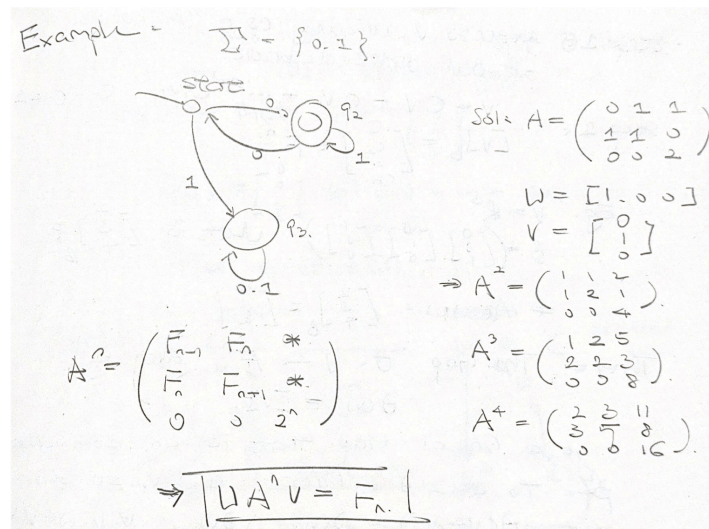 Example - Σ = {0.1}
start
0 q2
0 1
1
q3.
0.1
Sol: A = ( 0 1 1
1 1 0
0 0 2 )
U = [1. 0 0]
V = [ 0
1
0 ]
⇒ A² = ( 1 1 2
1 2 1
0 0 4 ).
A³ = ( 1 2 5
2 3
0 0 8 ).
A⁴ = ( 2 3 11
3 8
0 0 16 ).
Aⁿ = ( Fₙ₋₁ Fₙ *
Fₙ Fₙ₊₁ *
0 0 2ⁿ )
⇒ U Aⁿ V = Fₙ.